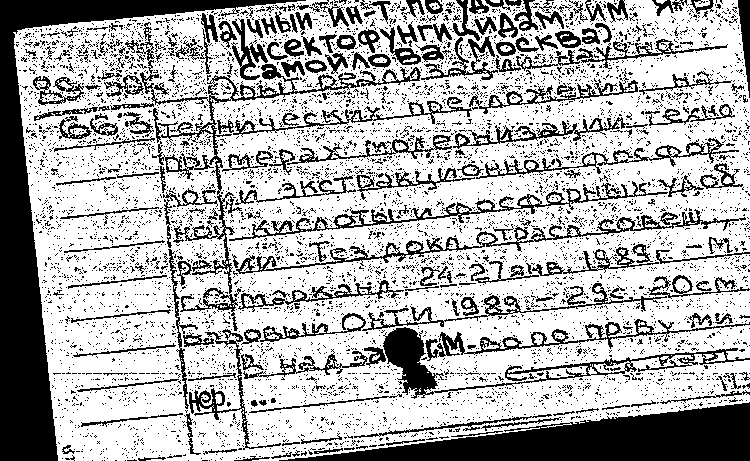 Научный ин-т по удобр.
инсектофунгицидам им. Я.В.
Самойлова (Москва)
Опыт реализации научно-
89-50к
технических предложений на
663
примерах модернизации техно
логий экстракционной фосфор
ной кислоты и фосфорных удоб
рений. Тез докл. отрасл. совещ.,
г. Самарканд, 24-27 янв. 1989 г. - М.:
Базовый ОНТИ, 1989. - 29с.; 20см.
В над. заг. М-во по пр-ву ми-
нер. ...
См. след. карт.